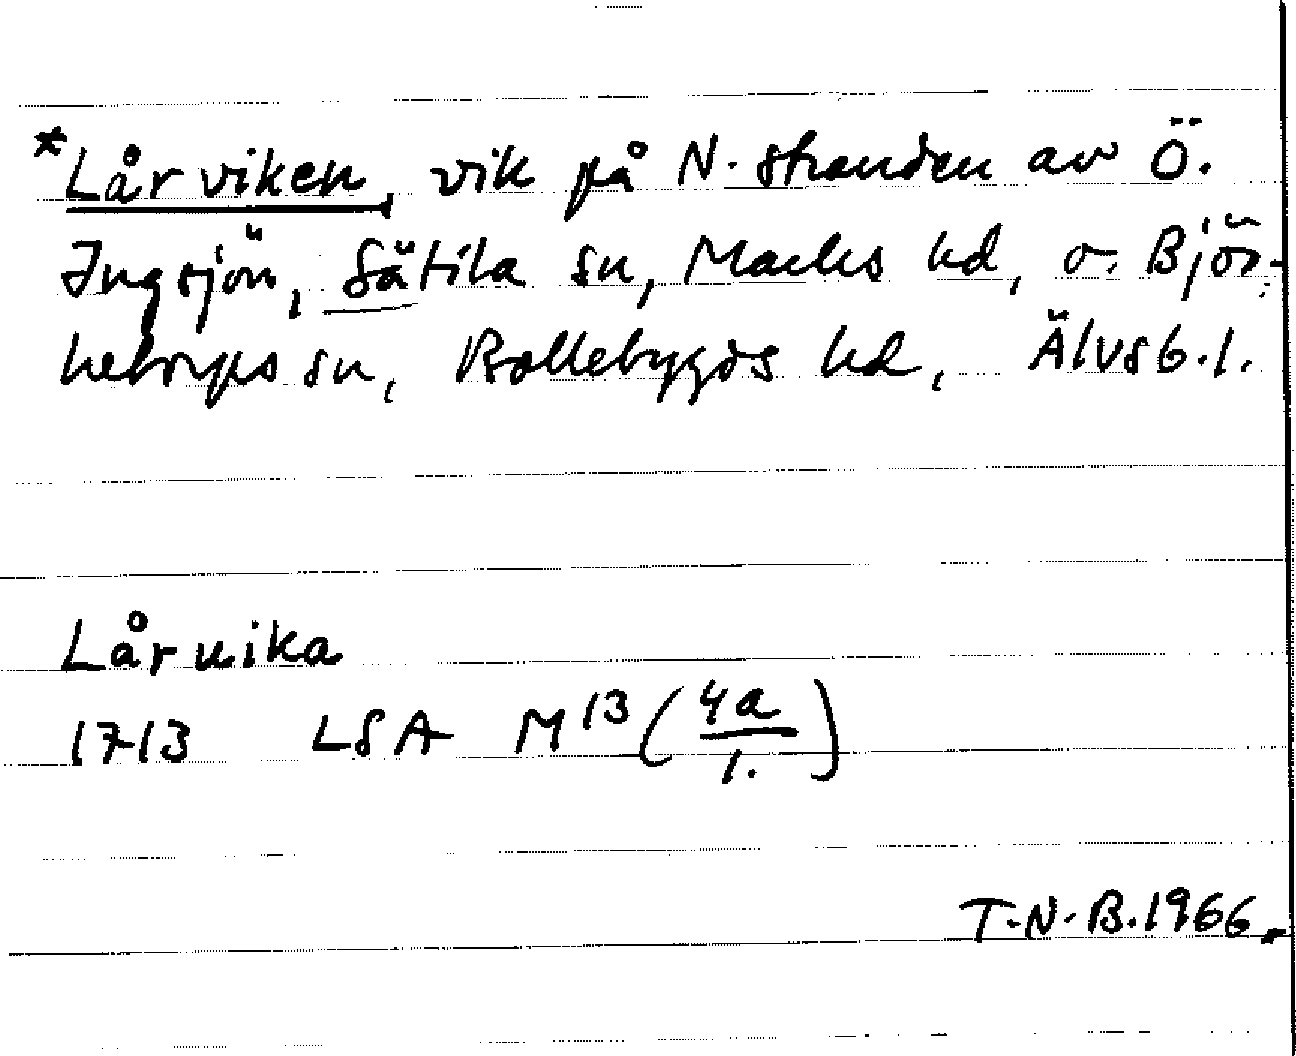 *Lårviken, vik på N. stranden av Ö.
Ingsjön, Sätila sn, Marks hd, o. Björ-
ketorps sn, Bollebygds hd, Älvsb. l.
Lårvika
1713 LSA M13 (4a/1.)
T.N.B. 1966.